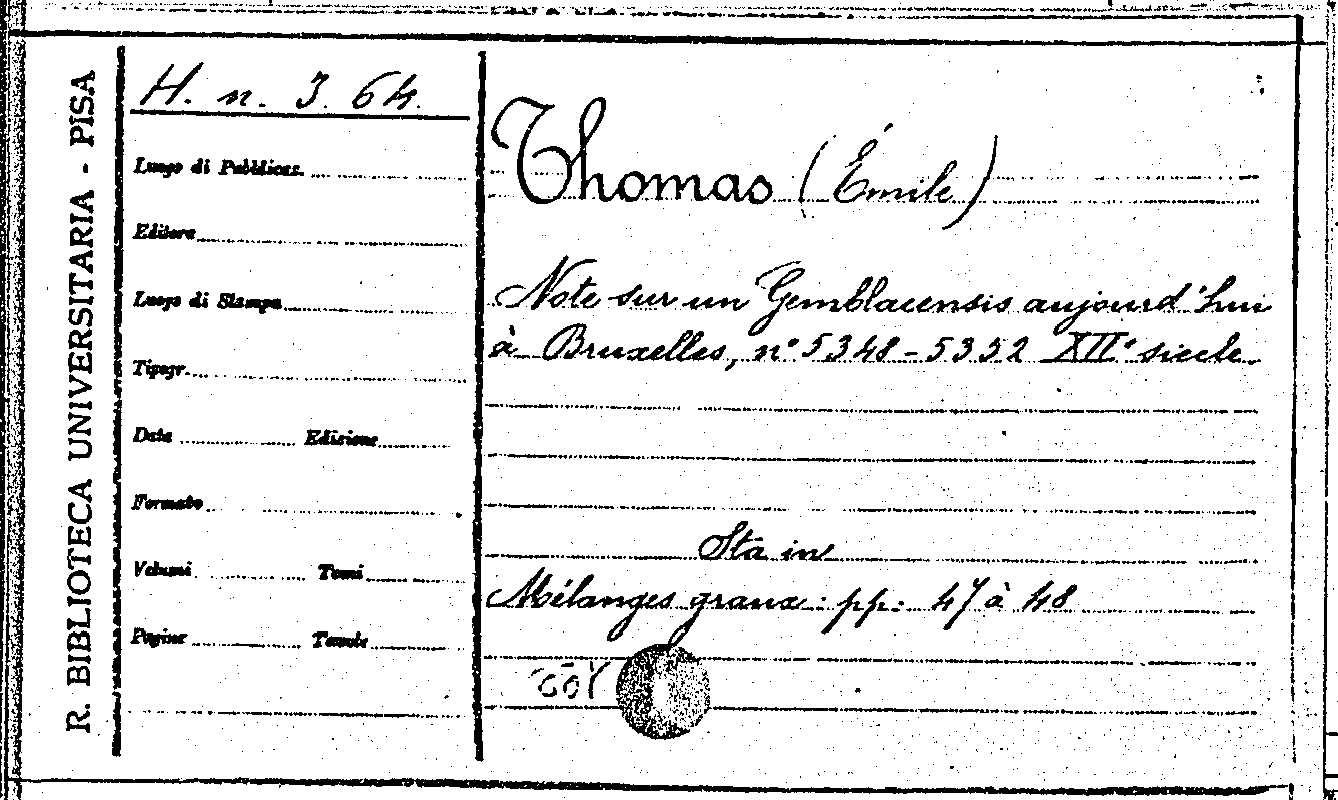 R. BIBLIOTECA UNIVERSITARIA - PISA
H. n. 3. 64.
Luogo di Pubblicaz.
Editore
Luogo di Stampa
Tipogr.
Data Edizione
Formato
Volumi Tomi
Pagine Tavole
Thomas (Émile)
Note sur un Gemblacensis aujourd'hui
à Bruxelles, n° 5348-5352 XII° siecle.
Sta in
Mélanges graux: pp: 47 à 48